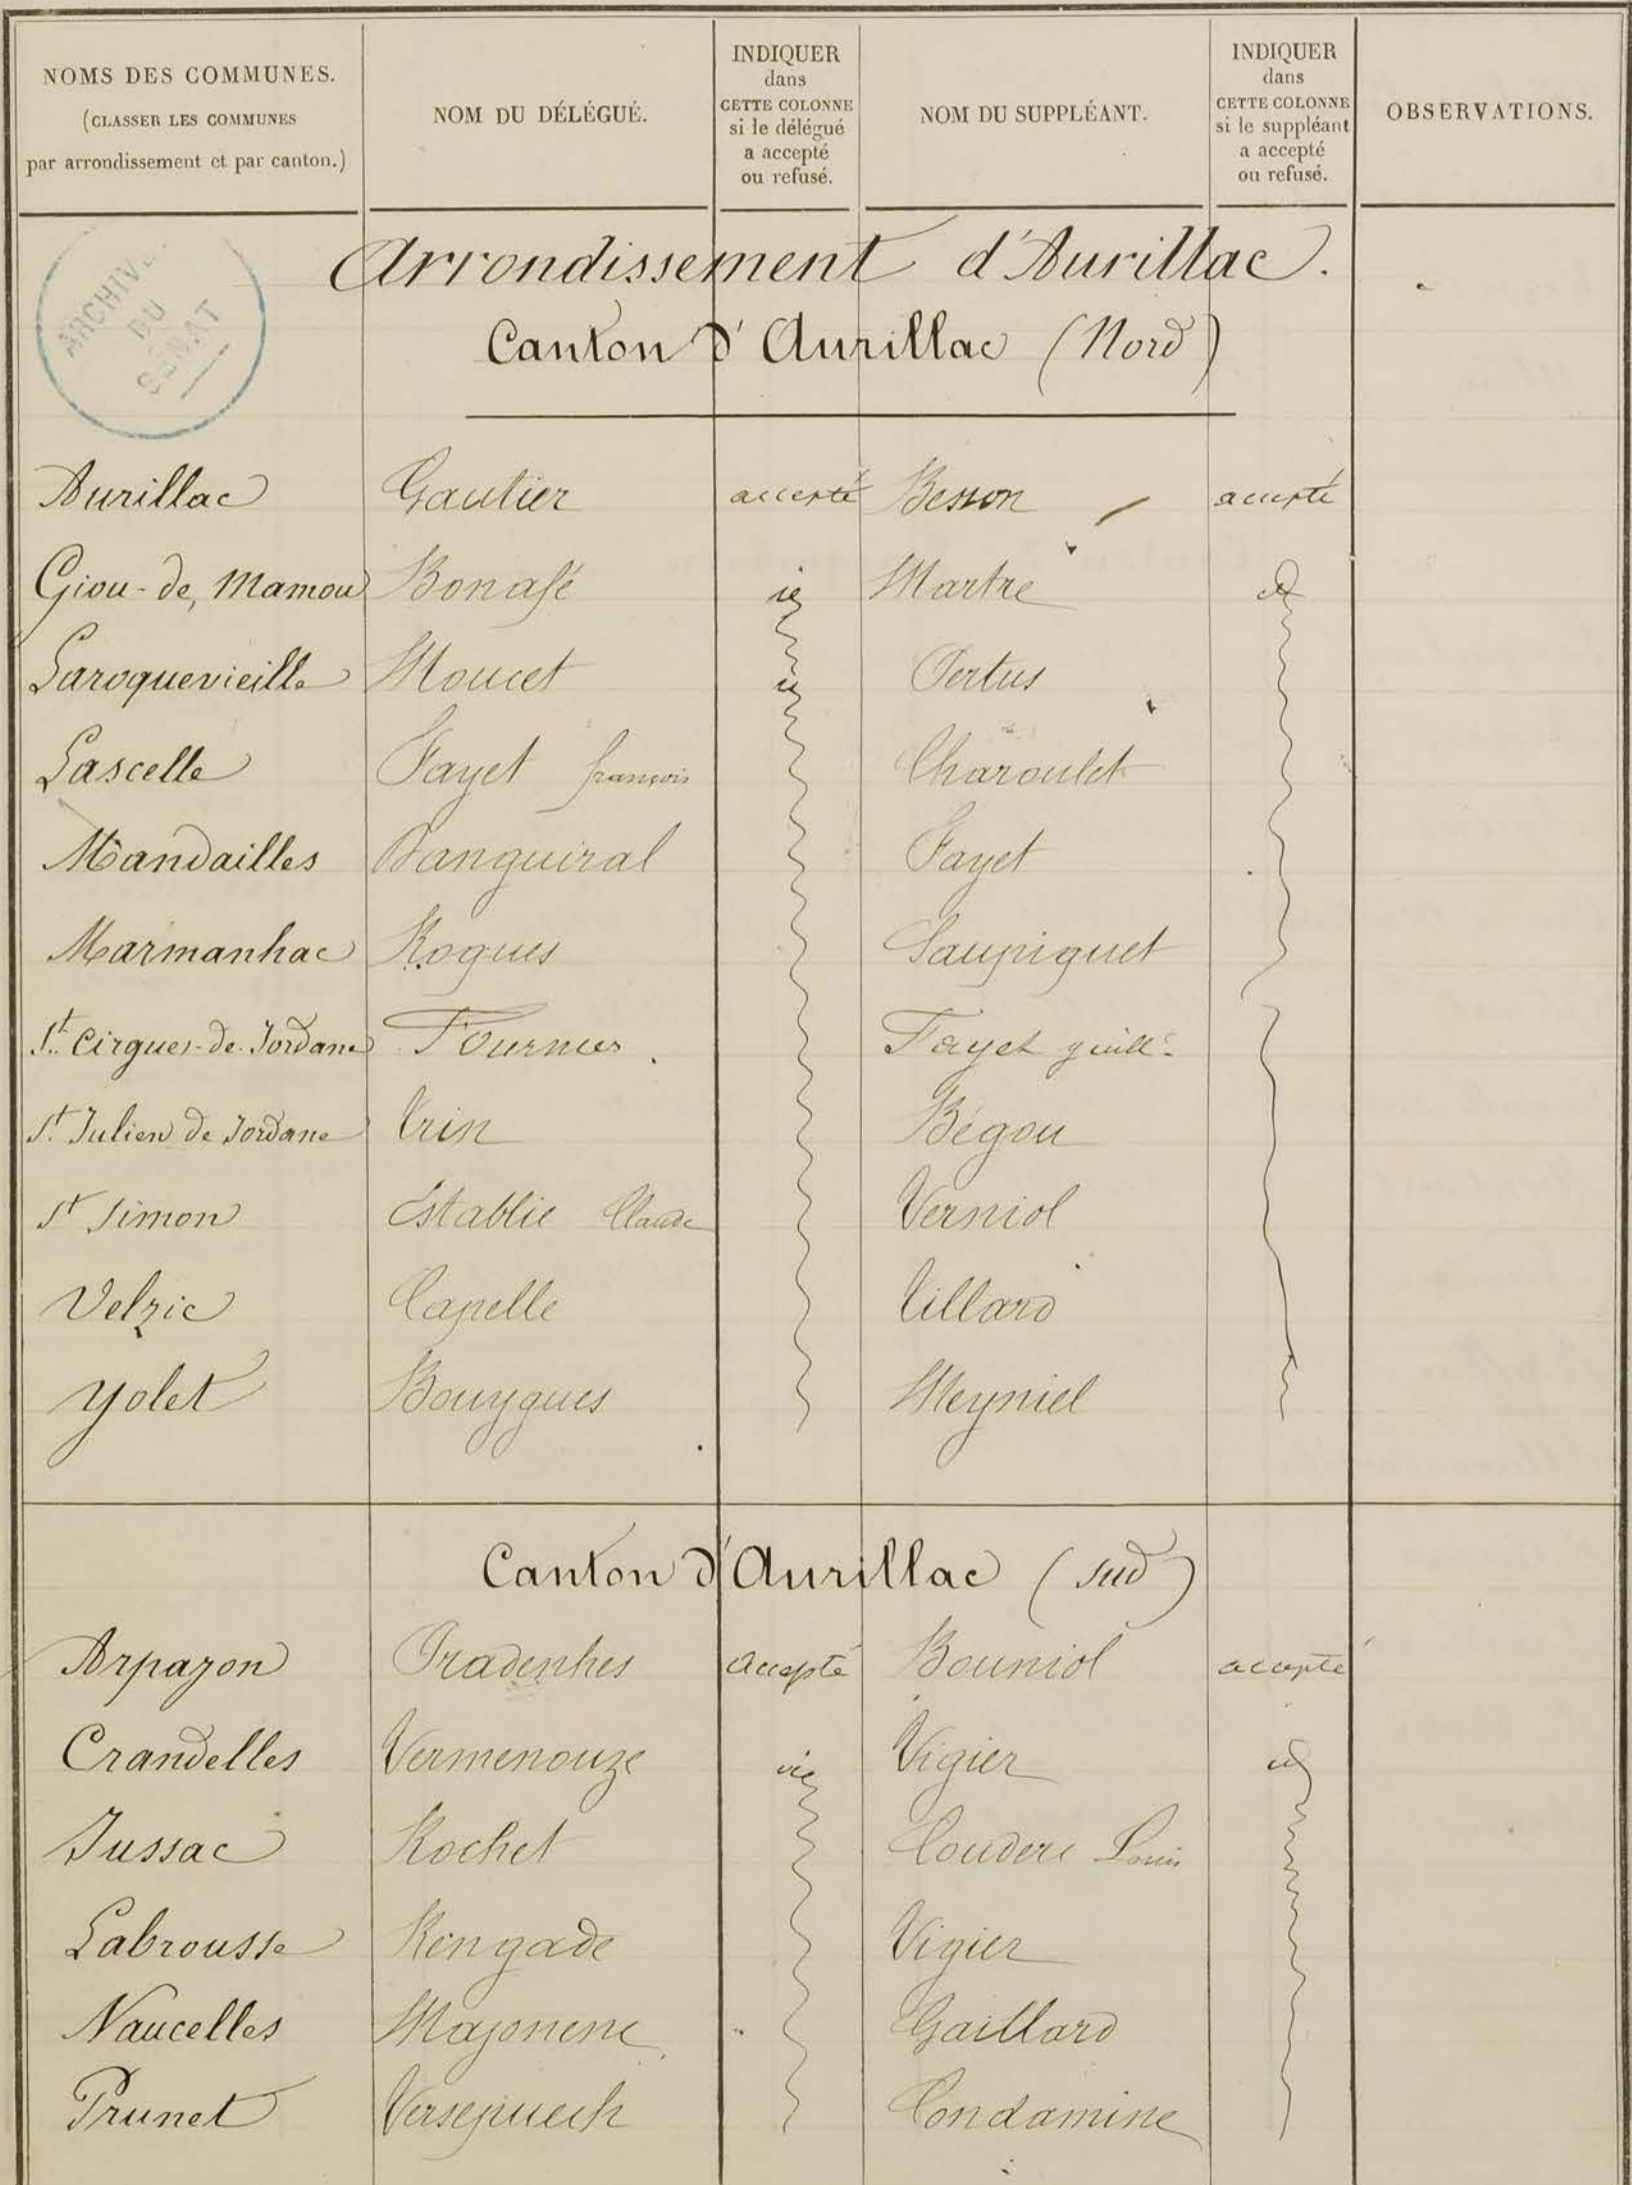 NOMS DES COMMUNES.
(CLASSER LES COMMUNES
par arrondissement et par canton.)
NOM DU DÉLÉGUÉ.
INDIQUER
dans
CETTE COLONNE
si le délégué
a accepté
ou refusé.
NOM DU SUPPLÉANT.
INDIQUER
dans
CETTE COLONNE
si le suppléant
a accepté
ou refusé.
OBSERVATIONS.
ARCHIV
DU
SÉNAT
Arrondissement d'Aurillac.
Canton d'Aurillac (Nord)
Aurillac Gautier accepté Besson accepté
Giou-de, Mamou Bonafé Martre
Laroquevieille Moucet Tertus
Lascelle Fayet françois Charoulet
Mandailles Fayet
Marmanhac Rogues Saupiquet
St. Cirgues-de-Jordane Fournier. Fayet guille.
St. Julien de Jordane Vrin Bégou
St Simon Establie Claude Verniol
Velzic Capelle Villard
Yolet Bouygues Meyniel
Canton d'Aurillac (sud)
Arpazon Pradenhes accepté Bouniol accepté
Crandelles Vermenouze Vigier
Jussac Rochet Couderc Louis
Labrousse Rengade Vigier
Naucelles Gaillard
Prunet Versepuech Condamine